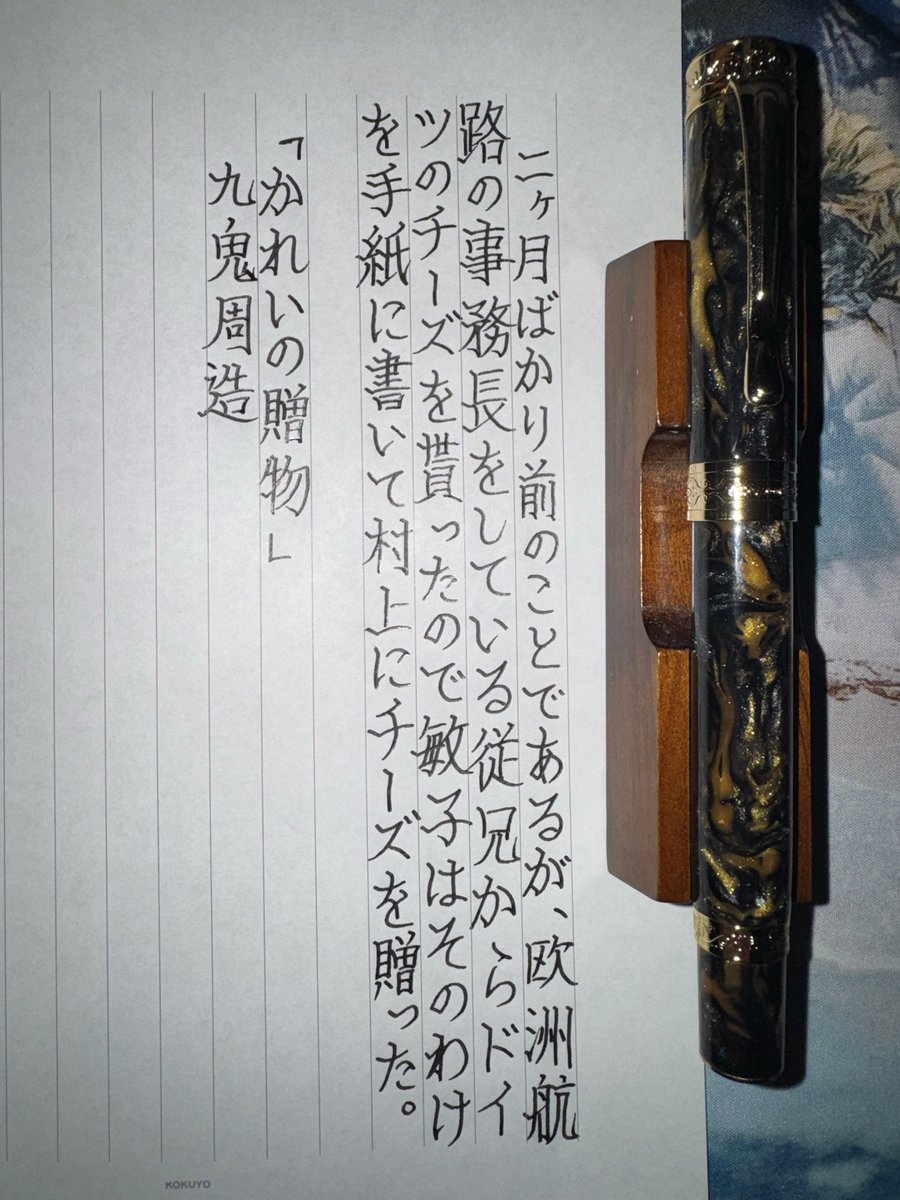 二ヶ月ばかり前のことであるが、欧洲航
路の事務長をしている従兄からドイ
ツのチーズを貰ったので敏子はそのわけ
を手紙に書いて村上にチーズを贈った。
「かれいの贈物」
九鬼周造
KOKUYO